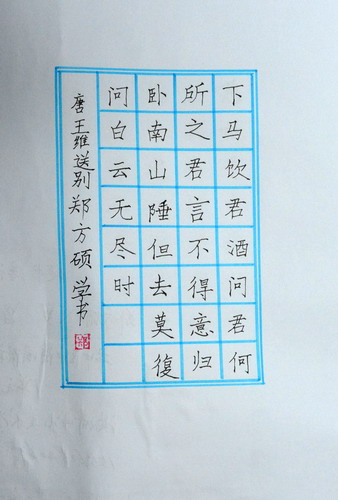 下马饮君酒问君何
所之君言不得意归
卧南山陲但去莫復
问白云无尽时
唐王维送别郑方硕学书